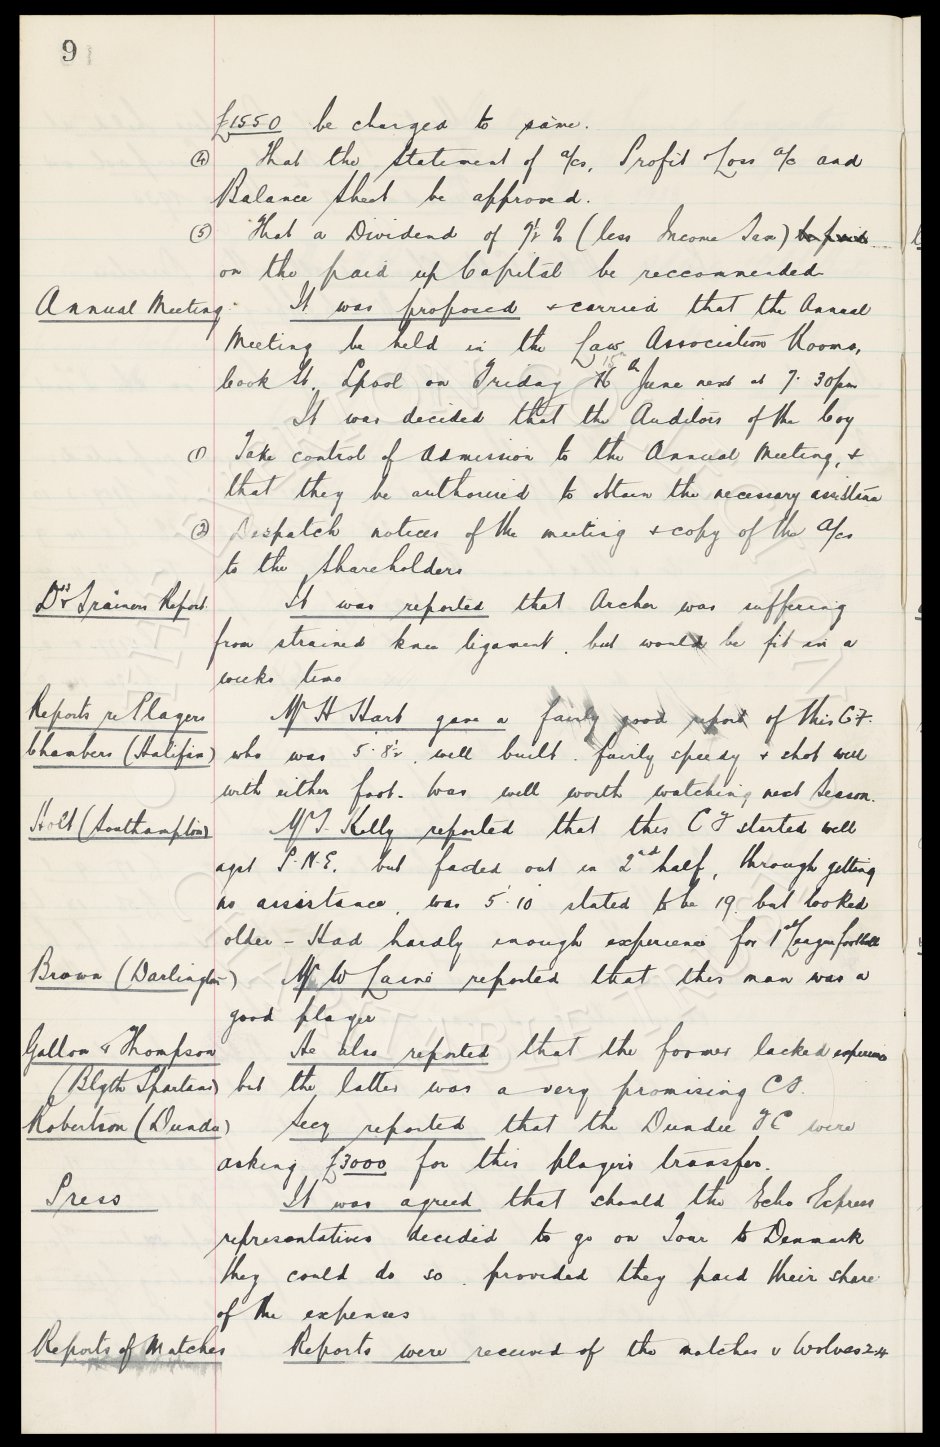 9
£1550 be charged to same.
(4) That the Statement of a/cs, Profit & Loss a/c and
Balance Sheet be approved.
(5) That a Dividend of 7½ % (less Income Tax) be paid
on the paid up Capital be reccommended
Annual Meeting. It was proposed & carried that the Annual
Meeting be held in the Law Association Rooms,
Cook St. Lpool on Friday 16th June next at 7.30pm
It was decided that the Auditors of the Coy
(1) Take control of admission to the Annual Meeting, &
that they be authorised to obtain the necessary assistance
(2) Despatch notices of the meeting & copy of the a/cs
to the Shareholders
Drs & Trainers Report. It was reported that Archer was suffering
from strained knee ligament, but would be fit in a
weeks time
Reports re Players Mr H Hart gave a fairly good report of this C.F.
Chambers (Halifax) who was 5' 8½, well built, fairly speedy & shot well
with either foot. Was well worth watching next Season.
Holt (Southampton) Mr T. Kelly reported that this C F started well
agst P.N.E. but faded out in 2nd half, through getting
no assistance, was 5' 10 stated to be 19. but looked
older – Had hardly enough experience for 1st League football
Brown (Darlington) Mr W Laine reported that this man was a
good player
Gallon & Thompson He also reported that the former lacked experience
(Blyth Spartans) but the latter was a very promising C F.
Robertson (Dundee) Secy reported that the Dundee FC were
asking £3000 for this player's transfer.
Press It was agreed that should the Echo & Express
representatives decided to go on Tour to Denmark
they could do so, provided they paid their share
of the expenses
Reports of Matches Reports were received of the matches v Wolves 2.4